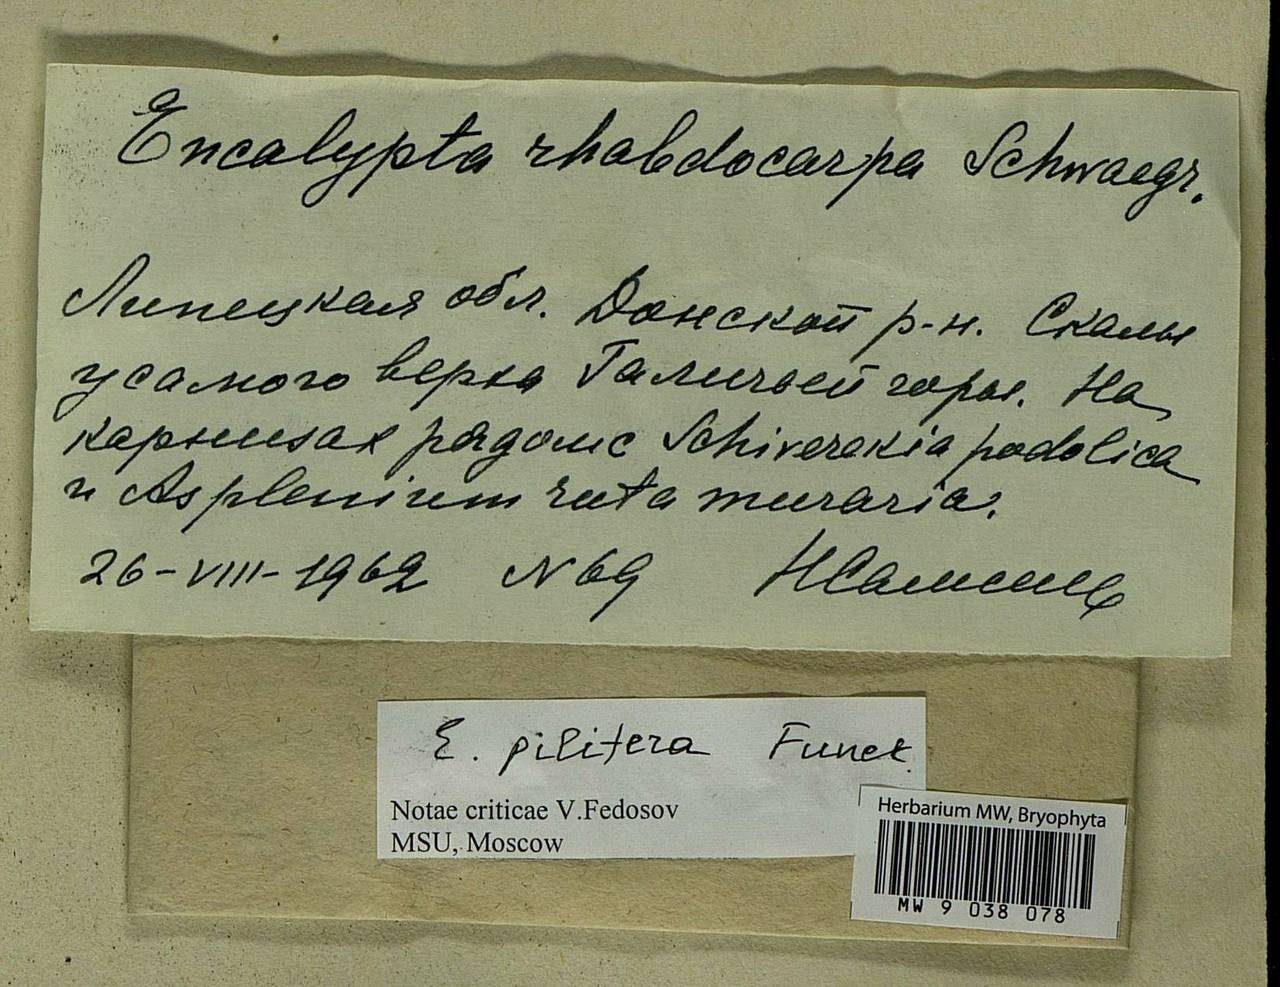 Encalypta rhabdocarpa Schwaegr.
Липецкая обл. Донской р-н. Скалы
у самого верха Галичьей горы. На
карнизах рядом с Schivereckia podolica
и Asplenium ruta muraria.
26-VIII-1962 N 69
E. pilifera Funck.
Notae criticae V.Fedosov
MSU, Moscow
Herbarium MW, Bryophyta
MW 9 038 078